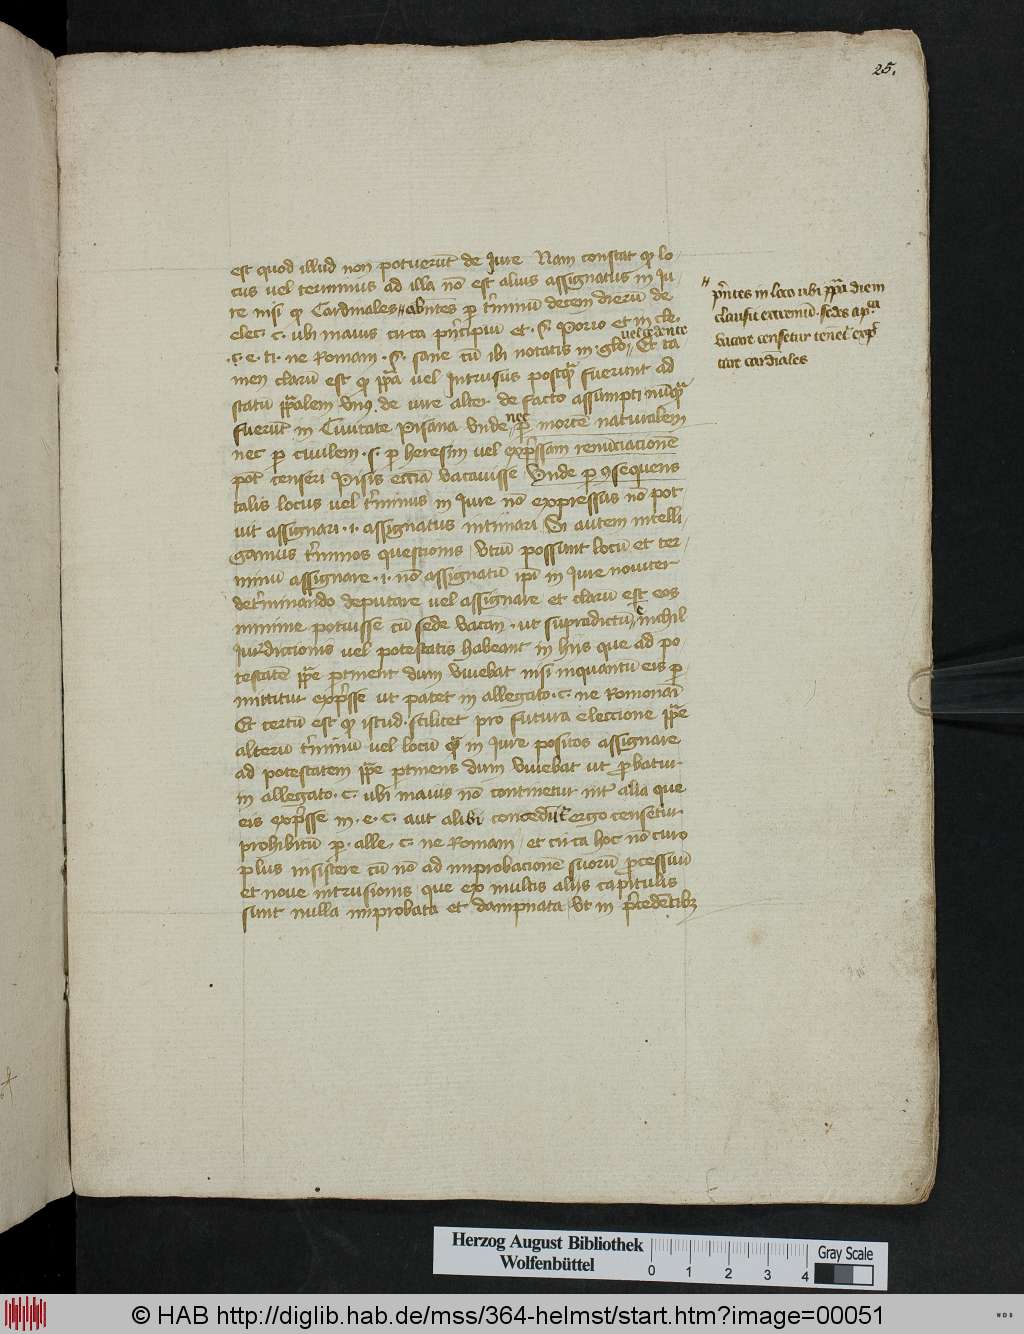 25.
est quod illud non potuerūt de Iure Nam constat qͥ lo-
cus vel terminus ad illa nō est alius assignatus in Iu
re nisi qͥ Cardinales〃 abñtes ꝑ tͬminū decem dierū de
elec. c. vbi maius circa pͥncipiū et .s. Porro et in cle.
.c. e. ti. ne Roman .s. sane cū ibi notatis in glo〃 Et ta
vel sedente
men clarū est qͥ ꝑꝑa vel Intrusus postqͣ fuerunt ad
statū ꝑꝑalem vnꝰ de iure alter de facto assumpti nūqͣ
fuerūt in Ciuitate Pisana vnde nec ꝑ mortē naturalem
nec ꝑ ciuilem .s. ꝑ heresim vel expͬssam renūciacionē
pot̄ censeri Pisis eccͥā vacauisse Vnde ꝑ ꝯsequens
talis locus vel tͬminus in Iure nō expressus nō pot
uit assignari .i. assignatus intimari Si autem intelli
gamus tͬminos questionis vtrū possunt locū et ter-
minū assignare .i. nō assignatū ip̄i in Iure nouiter
detͬminando deputare vel assignare et clarū est eos
minime potuisse cū sede vacan. vt supradictū ē nichil
Iurisdiccionis vel potestatis habeant in hiis que ad po
testatē ꝑꝑe ꝑtinent dum viuebat nisi inquantū eis ꝑ
mittitur expͬsse ut patet in allegato .c. ne Romani
Et certū est qͥ istud scilicet pro futura eleccione ꝑꝑe
alterū tͬminū vel locū qͣ in Iure positos assignare
ad potestatem ꝑꝑe ꝑtinens dum viuebat ut ꝓbatur
in allegato .c. vbi maius nō continetur intͬ alia que
eis expͬsse in .e. c. aut alibi concedūtͬ ergo censetur
prohibitū ꝑ. alle. c. ne Romani et circa hoc nō curo
plus insistere cū nō ad improbacionē suorū ꝓcessuū
et noue intrusionis que ex multis aliis capitulis
sunt nulla improbata et dampnata vt in pͬcedētibꝫ
〃 pͬntes in loco vbi ꝑꝑa diem
clausit extremū. sedes ap.ca
vacare censetur tenet expͬ
tare cardīales
Herzog August Bibliothek
Wolfenbüttel
0 1 2 3 4
Gray Scale
© HAB http://diglib.hab.de/mss/364-helmst/start.htm?image=00051